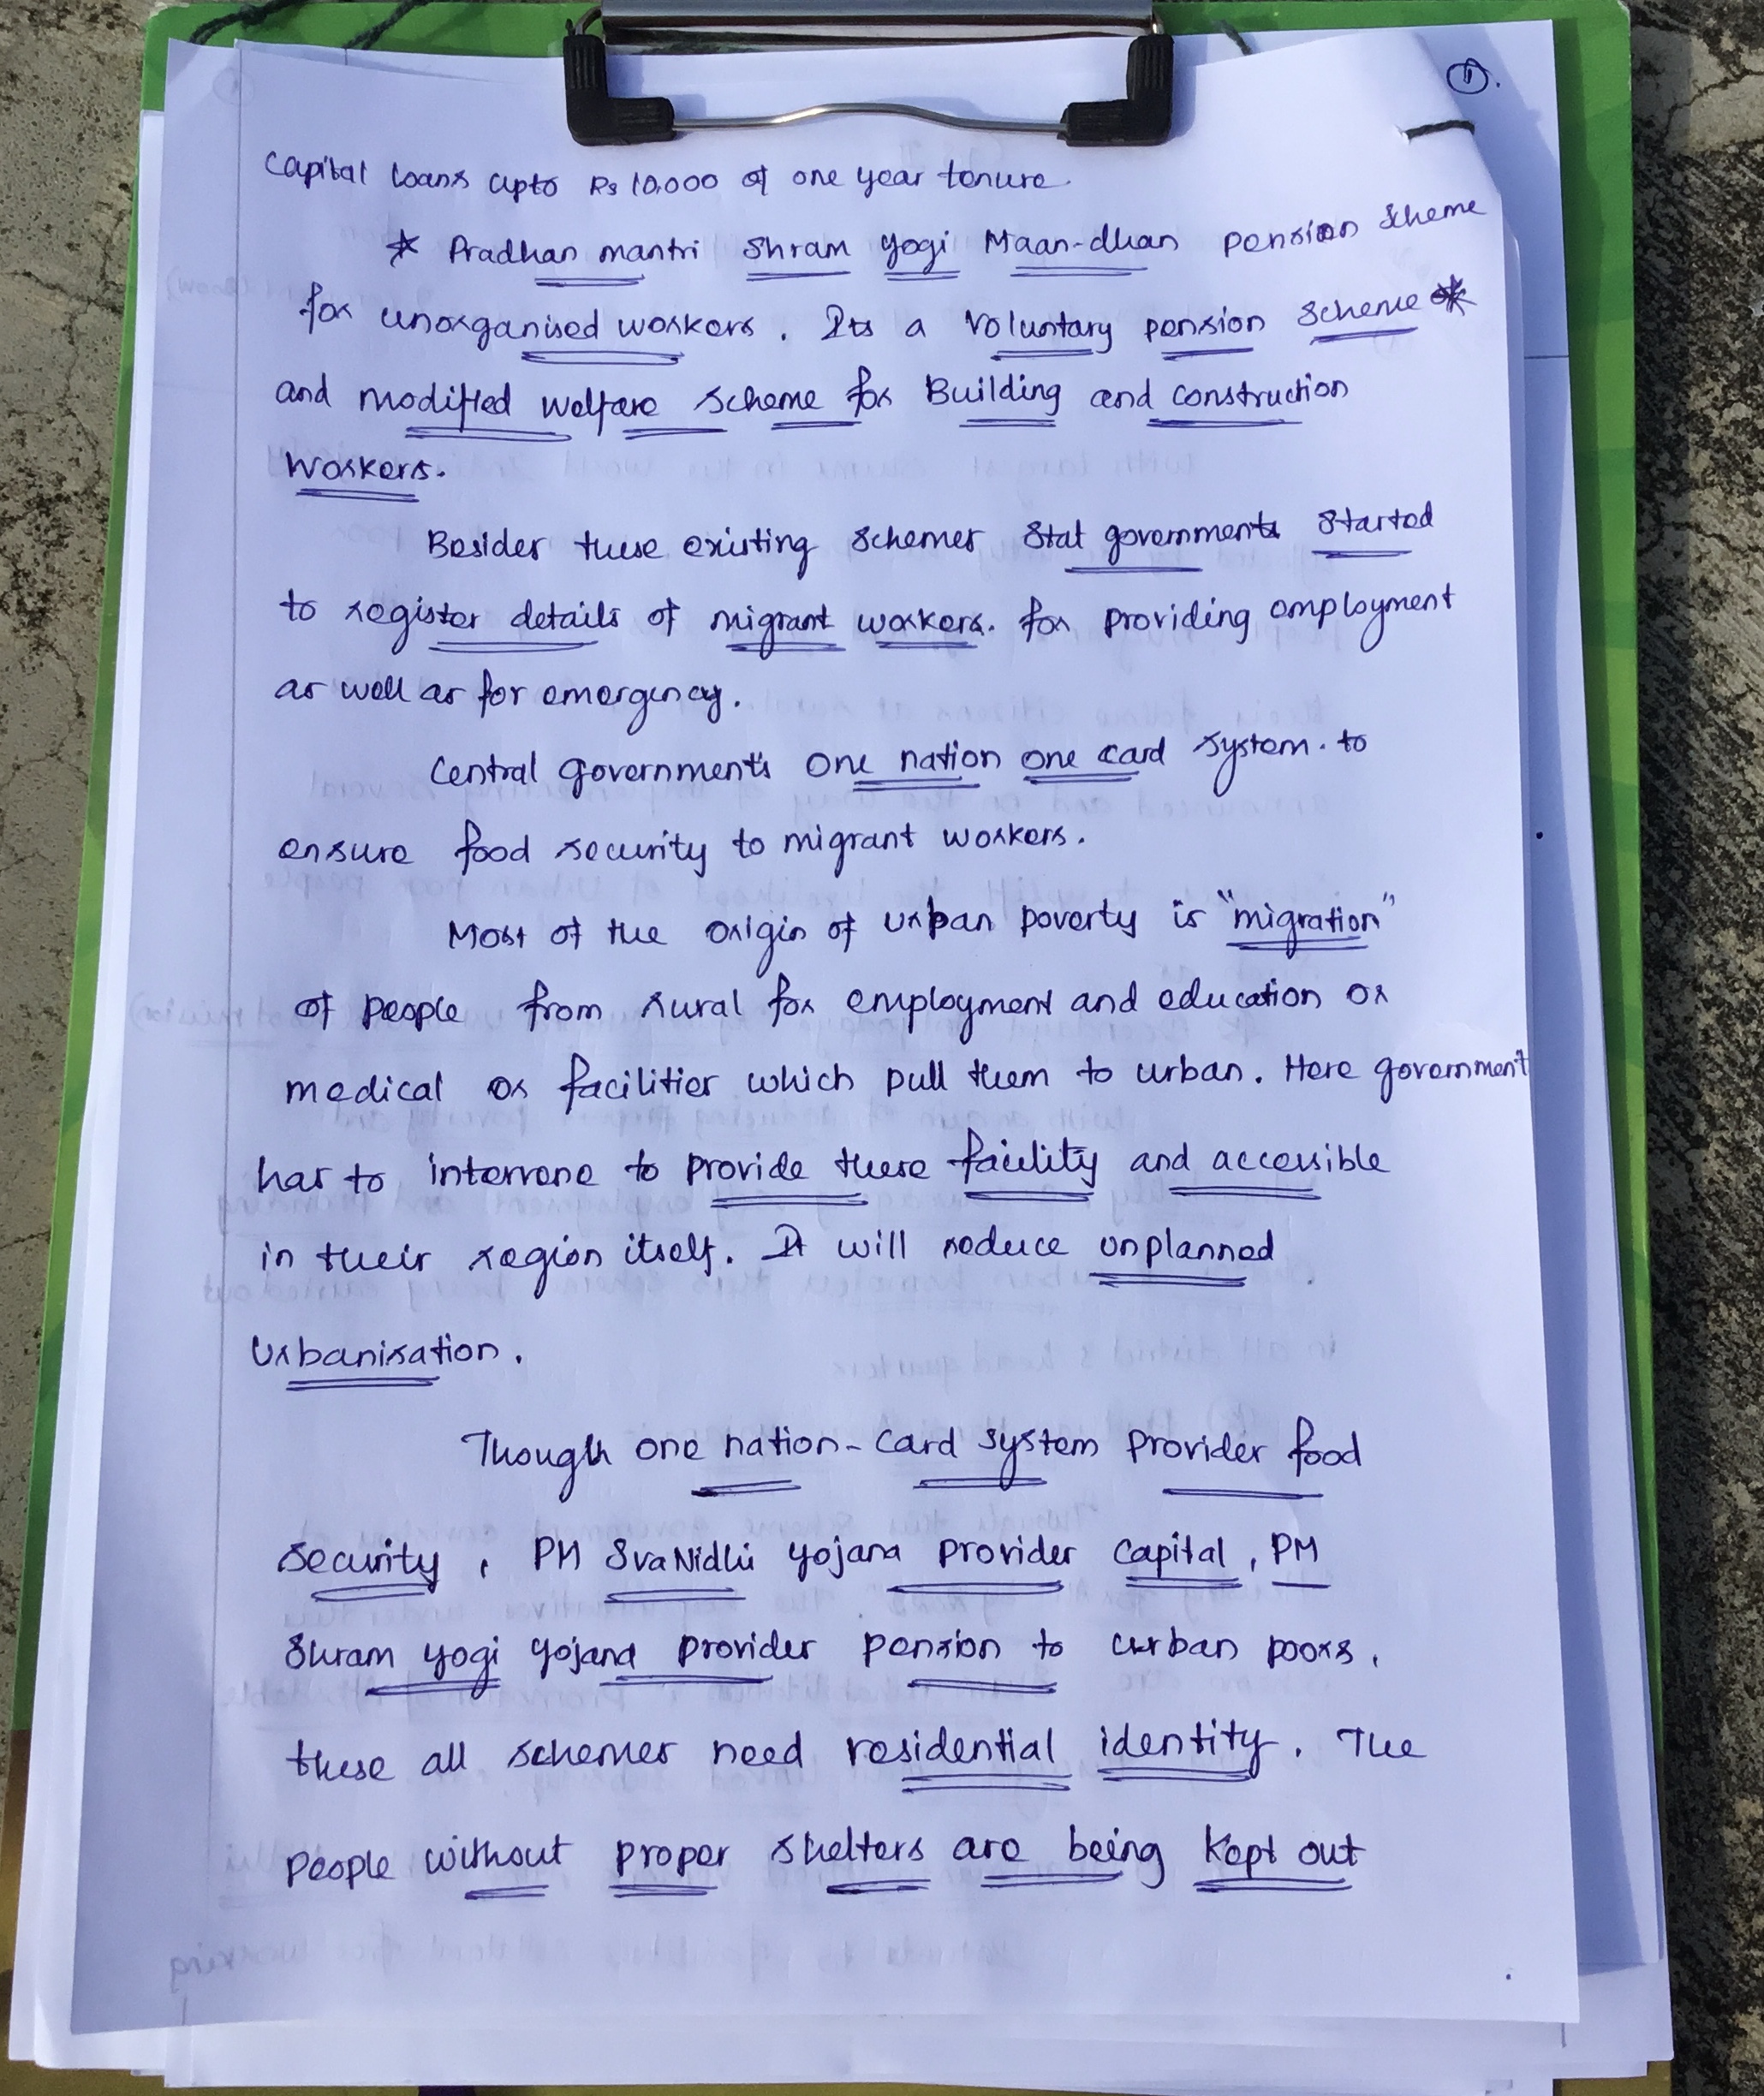 ①.
Capital loans upto Rs 10,000 of one year tenure.
* Pradhan mantri Shram yogi Maan-dhan pension scheme
for unorganised workers. Its a voluntary pension scheme
and modified welfare scheme for Building and construction
workers.
Besides these existing schemes Stat governments started
to register details of migrant workers. for providing employment
as well as for emergency.
Central government's one nation one card system. to
ensure food security to migrant workers.
Most of the origin of urban poverty is "migration"
of people from rural for employment and education or
medical or facilities which pull them to urban. Here government
has to intervene to provide these facility and accessible
in their region itself. It will reduce unplanned
Urbanisation.
Though one nation-card system provides food
security, PM SvaNidhi yojana provides capital, PM
Shram yogi yojana provides pension to urban poors,
these all schemes need residential identity. The
people without proper shelters are being kept out